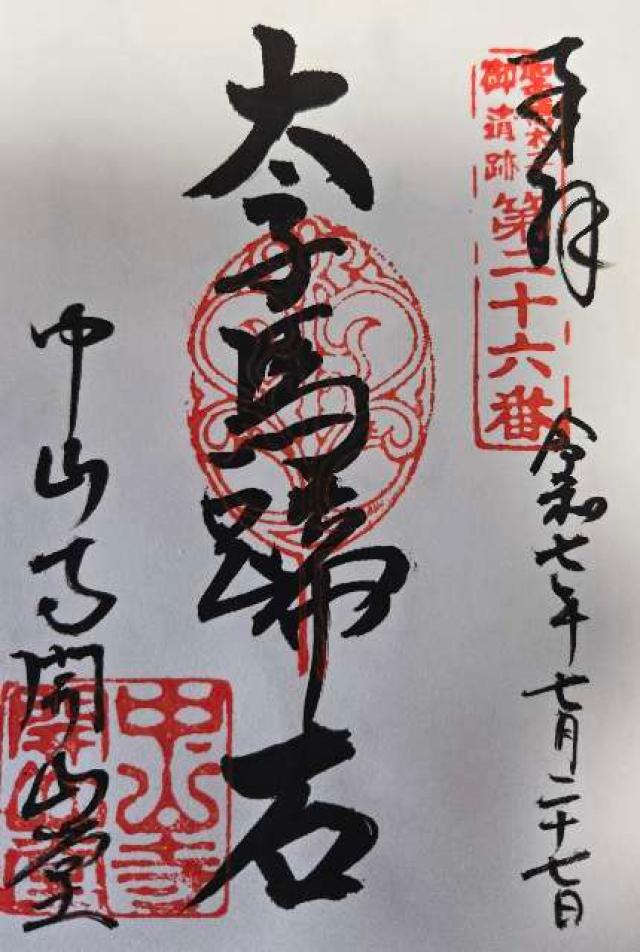 奉拝
聖徳太子
御遺跡
第二十六番
令和七年七月二十七日
太子馬蹄石
中山寺開山堂
中山寺
開山堂